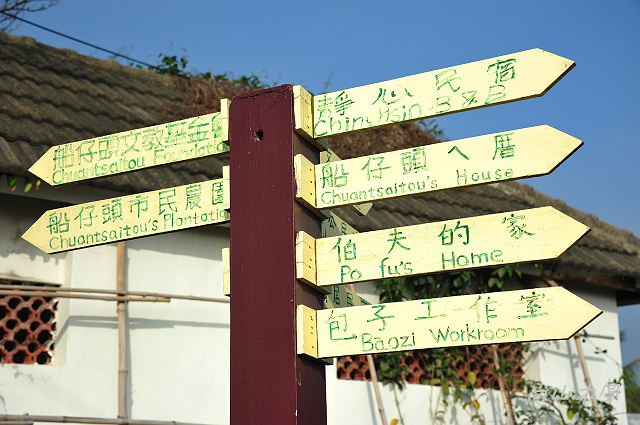 船仔頭文教基金會
Chuantsaitou Foundation
船仔頭市民農園
Chuantsaitou's Plantation
靜心民宿
Ching Hsin B&B
船仔頭ㄟ厝
Chuantsaitou's House
伯夫的家
Po fu's Home
包子工作室
Baozi Workroom